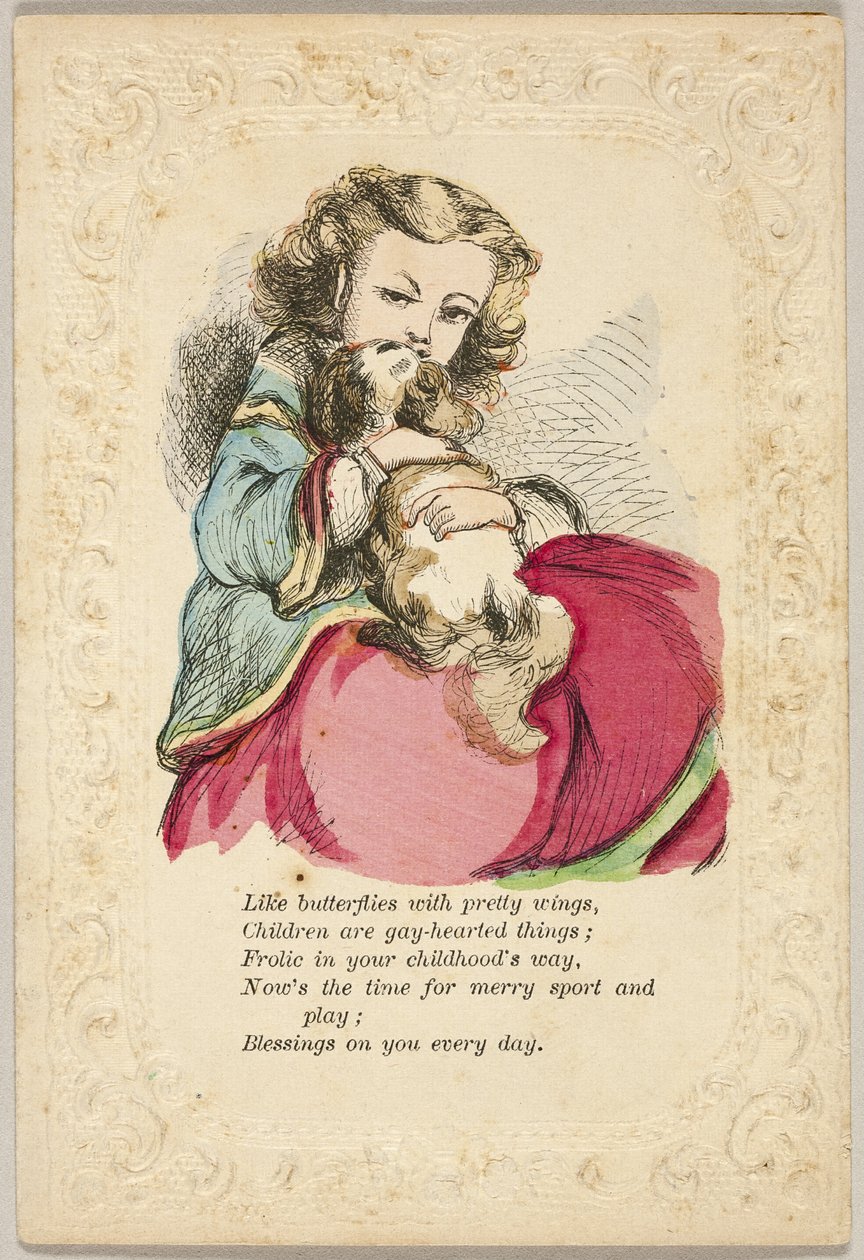 Like butterflies with pretty wings,
Children are gay-hearted things;
Frolic in your childhood's way,
Now's the time for merry sport and
play;
Blessings on you every day.